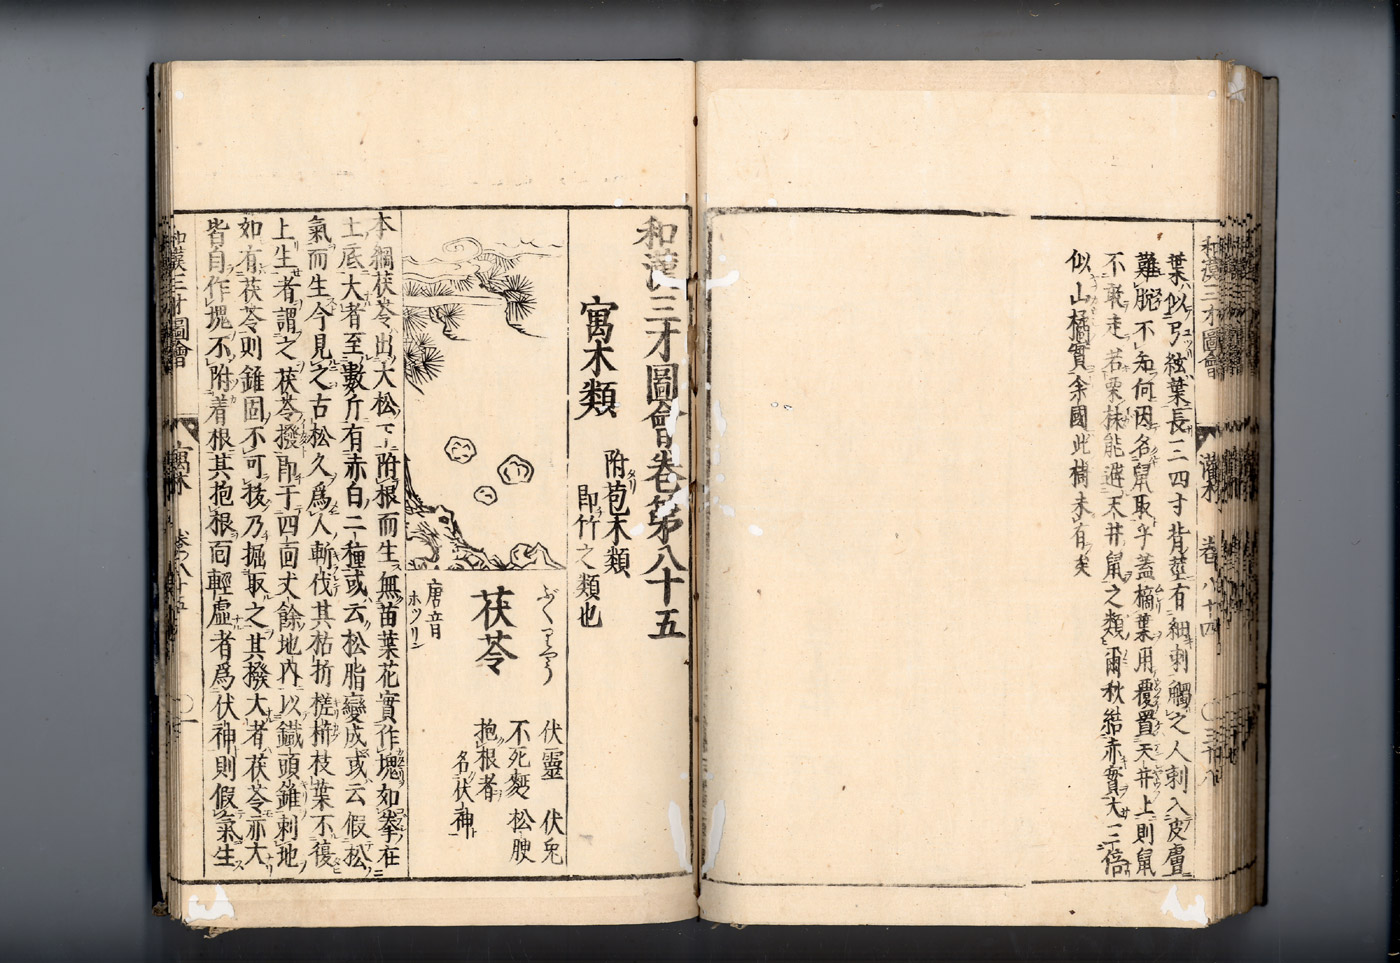 和漢三才圖會
灌木
卷八十四
葉似弓絃葉長三四寸背莖有細刺觸之人刺入皮膚
難脫不知何因名鼠取乎蓋樀葉用覆置天井上則鼠
不敢走若栗抹能避天井鼠之類爾秋結赤實大三倍
似山橘實余國此樹未有矣
和漢三才圖會卷第八十五
寓木類
附苞木類
即竹之類也
茯苓
ぶくりやう
唐音
ホツリン
伏靈 伏兎
不死麪 松腴
抱根者
名茯神
本綱茯苓出大松下附根而生無苗葉花實作塊如拳在
土底大者至數斤有赤白二種或云松脂變成或云假松
氣而生今見之古松久爲人斬伐其枯折槎枿枝葉不復
上生者謂之茯苓撥即于四面丈餘地內以鐵頭錐刺地
如有茯苓則錐固不可拔乃掘取之其撥大者茯苓亦大
皆自作塊不附着根其抱根而輕虛者爲伏神則假氣生
和漢三才圖會
寓木
卷八十五
一